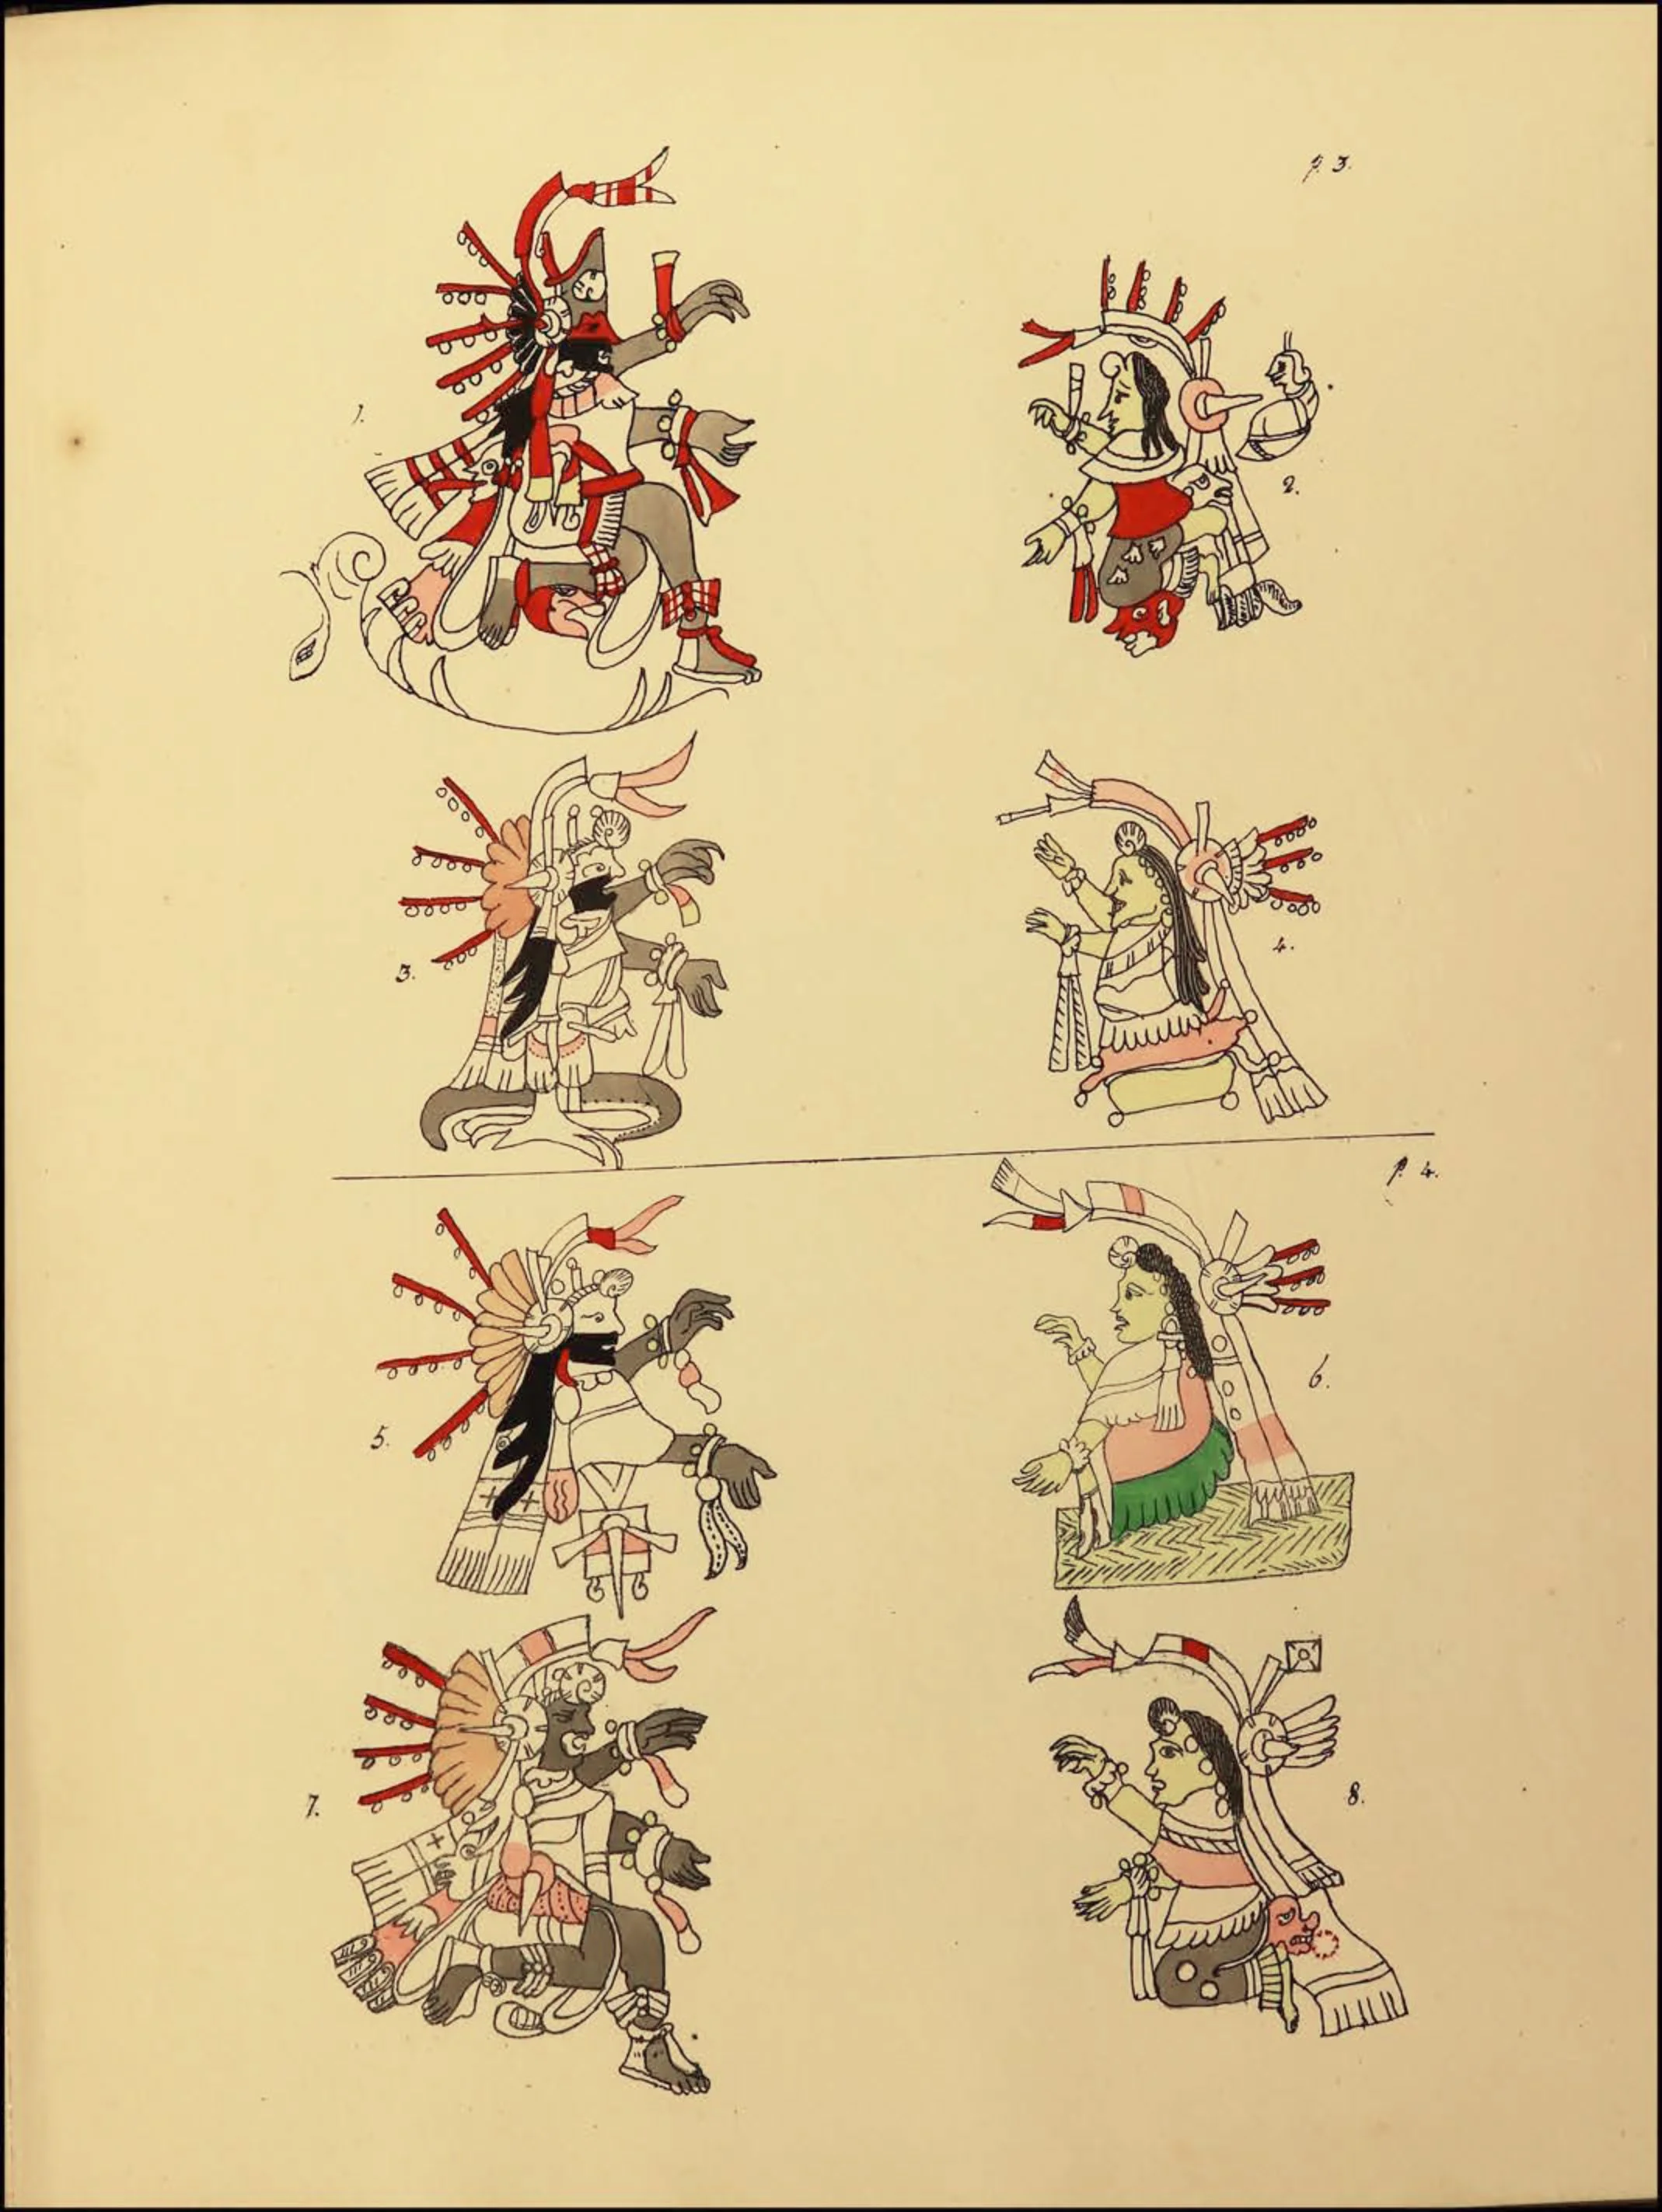 p. 3.
1.
2.
3.
4.
p. 4.
5.
6.
7.
8.